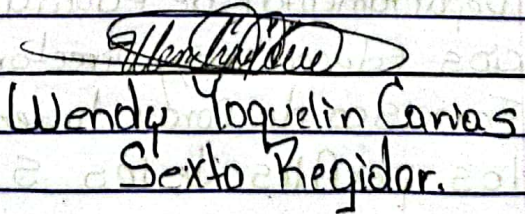 Wendy Yoquelin Canas
Sexto Regidor.